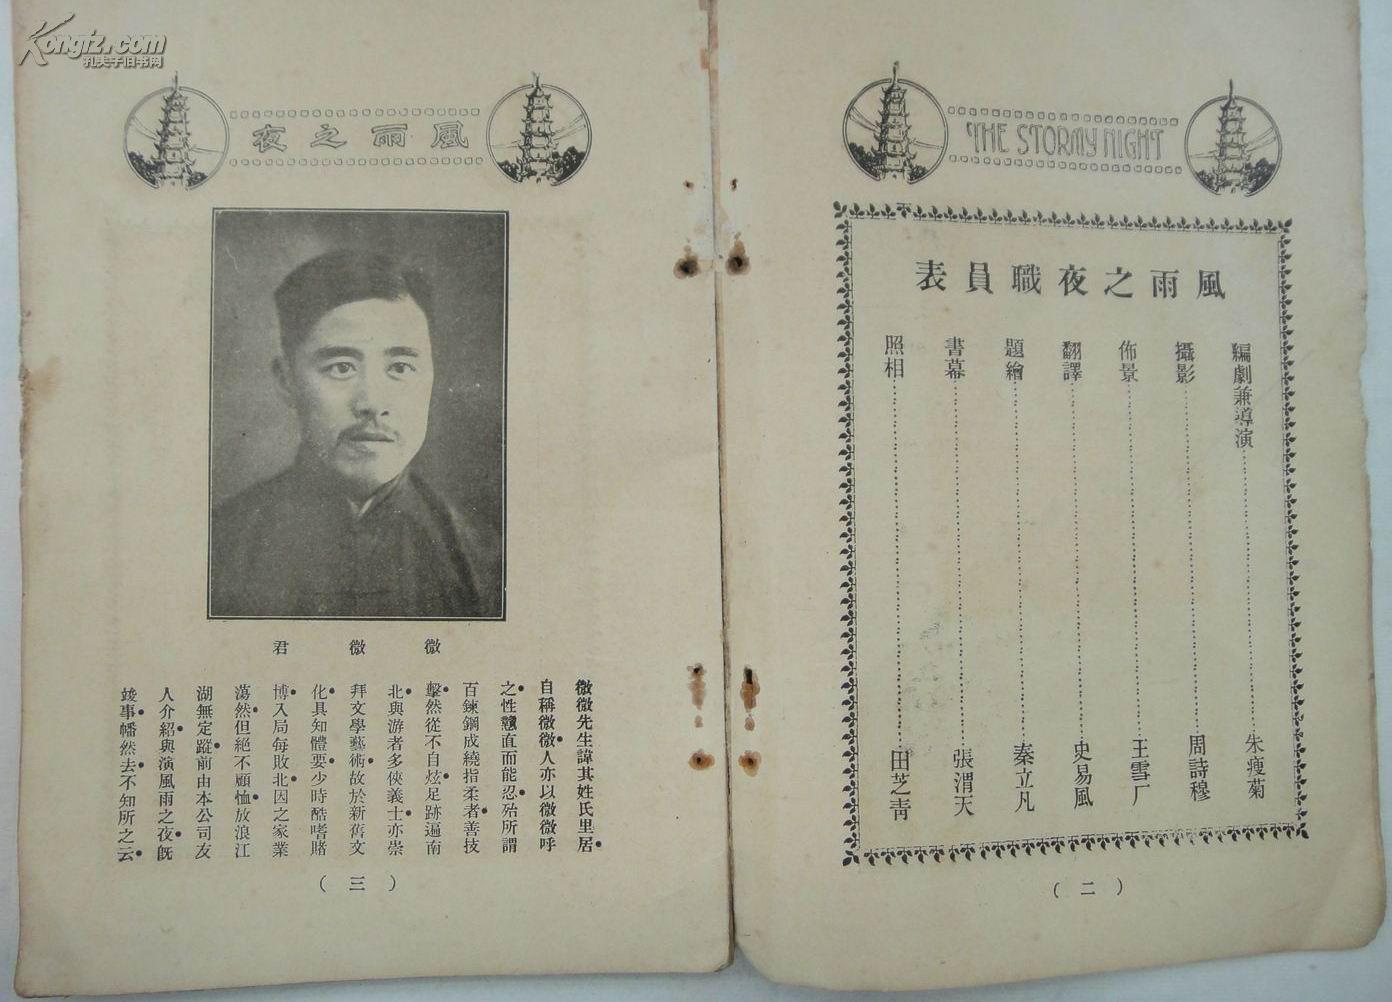 Kongfz.com
孔夫子旧书网
THE STORMY NIGHT
風雨之夜職員表
編劇兼導演……朱瘦菊
攝影……周詩穆
佈景……王雪厂
翻譯……史易風
題繪……秦立凡
書幕……張渭天
照相……田芝青
（二）
風雨之夜
微微君
微微先生諱其姓氏里居●
自稱微微●人亦以微微呼
之●性戇直而能忍●殆所謂
百鍊鋼成繞指柔者●善技
擊●然從不自炫●足跡遍南
北●與游者多俠義士●亦崇
拜文學藝術●故於新舊文
化●具知體要●少時酷嗜賭
博●入局每敗北●因之家業
蕩然●但絕不顧恤●放浪江
湖無定蹤●前由本公司友
人介紹●與演風雨之夜●既
竣事●幡然去●不知所之云●
（三）